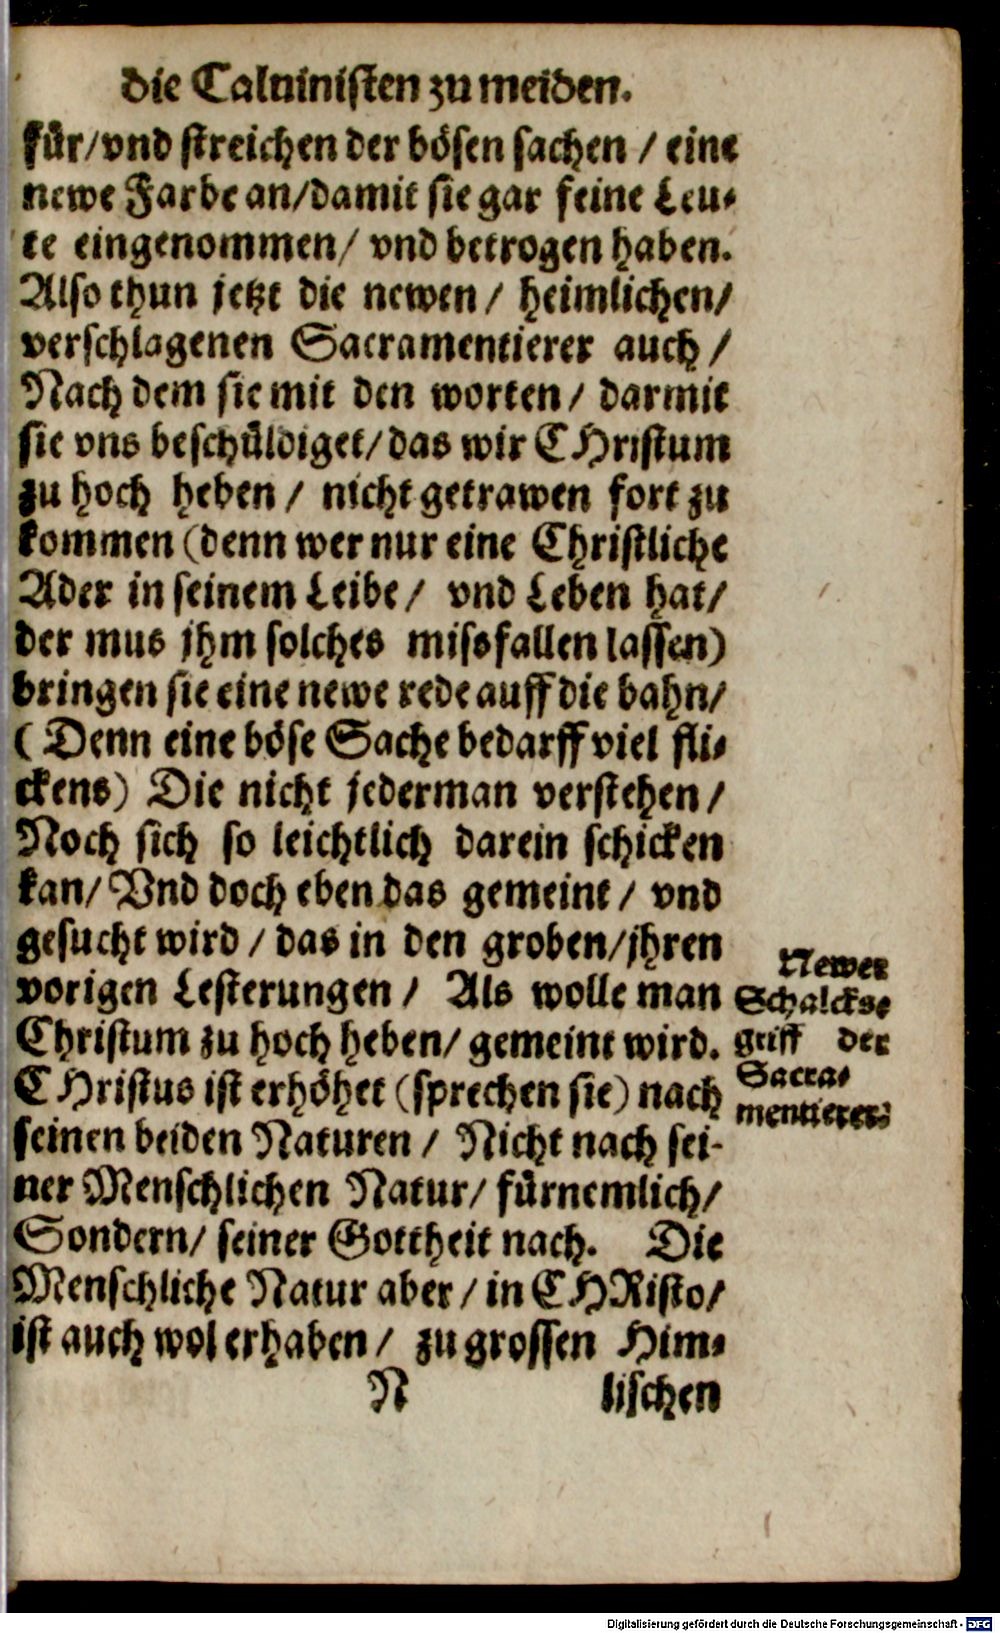 die Caluinisten zu meiden.
für/vnd streichen der bösen sachen / eine
newe Farbe an/damit sie gar feine Leu⸗
te eingenommen/ vnd betrogen haben.
Also thun jetzt die newen / heimlichen/
verschlagenen Sacramentierer auch /
Nach dem sie mit den worten / darmit
sie vns beschüldiget/das wir CHristum
zu hoch heben / nicht getrawen fort zu
kommen (denn wer nur eine Christliche
Ader in seinem Leibe / vnd Leben hat/
der mus jhm solches missfallen lassen)
bringen sie eine newe rede auff die bahn/
(Denn eine böse Sache bedarff viel fli⸗
ckens) Die nicht jederman verstehen /
Noch sich so leichtlich darein schicken
kan/ Vnd doch eben das gemeint / vnd
gesucht wird / das in den groben/jhren
vorigen Lesterungen / Als wolle man
Christum zu hoch heben/ gemeint wird.
CHristus ist erhöhet (sprechen sie) nach
seinen beiden Naturen / Nicht nach sei-
ner Menschlichen Natur/ fürnemlich/
Sondern/ seiner Gottheit nach. Die
Menschliche Natur aber / in CHRisto/
ist auch wol erhaben / zu grossen Him⸗
N lischen
Newer
Schalcks⸗
griff der
Sacra⸗
mentierer.
Digitalisierung gefördert durch die Deutsche Forschungsgemeinschaft - DFG